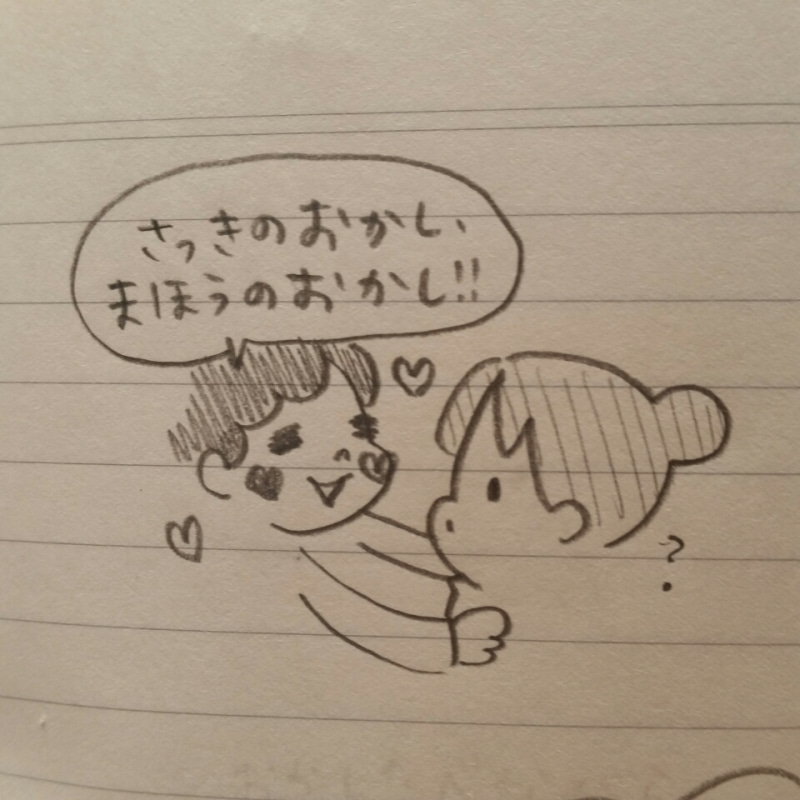 さっきのおかし、
まほうのおかし!!
?